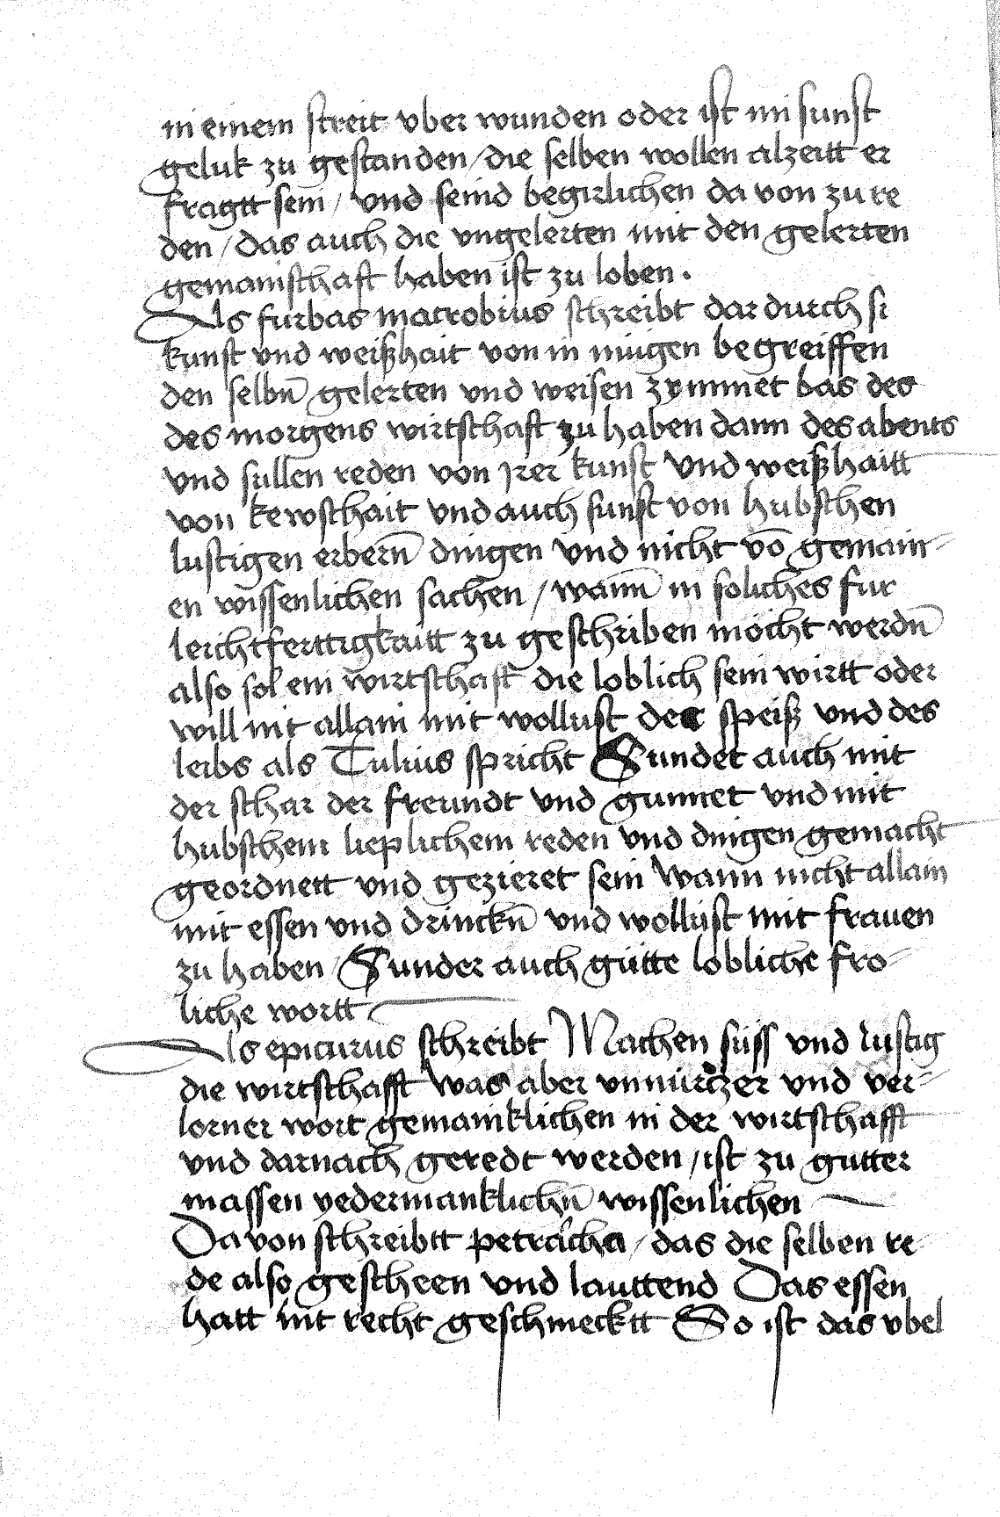 in einem streit vber wunden oder ist im sunst
geluk zu gestanden / die selben wollen alzeitt er
fragtt sein / vnd seind begirlichen da von zu re
den / das auch die vngelerten mit den gelerten
gemainschaft haben ist zu loben .
Als furbas macrobius schreibt dar durch si
kunst vnd weißhait von in mügen begreiffen
den selbn̄ gelerten vnd weisen zymmet bas des
des morgens wirtschaft zu haben dann des abents
vnd sullen reden von Irer kunst vnd weißhaitt
von kewschait vnd auch sunst von hubschen
lustigen erbern̄ dingen vnd nicht vō gemain-
en wissenlichen sachen / wann̄ in soliches fur
leichtferttigkaitt zu geschriben möcht werdn̄
also sol ein wirtschaft die loblich sein wirtt oder
will nit allain mit wollust der speiß vnd des
leibs als Tulius spricht Sunder auch mit
der schar der freundt vnd gunnet vnd mit
hubschem lieplichem reden vnd dingen gemacht
geordnett vnd gezieret sein Wann nicht allain
mit essen vnd drinckn̄ vnd wollust mit frauen
zu haben / Sunder auch gütte lobliche fro-
liche wortt
Als epicurus schreibt Machen süss vnd lustig
die wirtschafft Was aber vnnürczer vnd ver-
lorner wort gemainklichen in der wirtschafft
vnd darnach geredt werden / ist zu gutter
massen yedermanklichn̄ wissenlichen
Da von schreibtt petrarcha / das die selben re-
de also gescheen vnd lauttend Das essen
hatt nit recht geschmecktt So ist das vbel